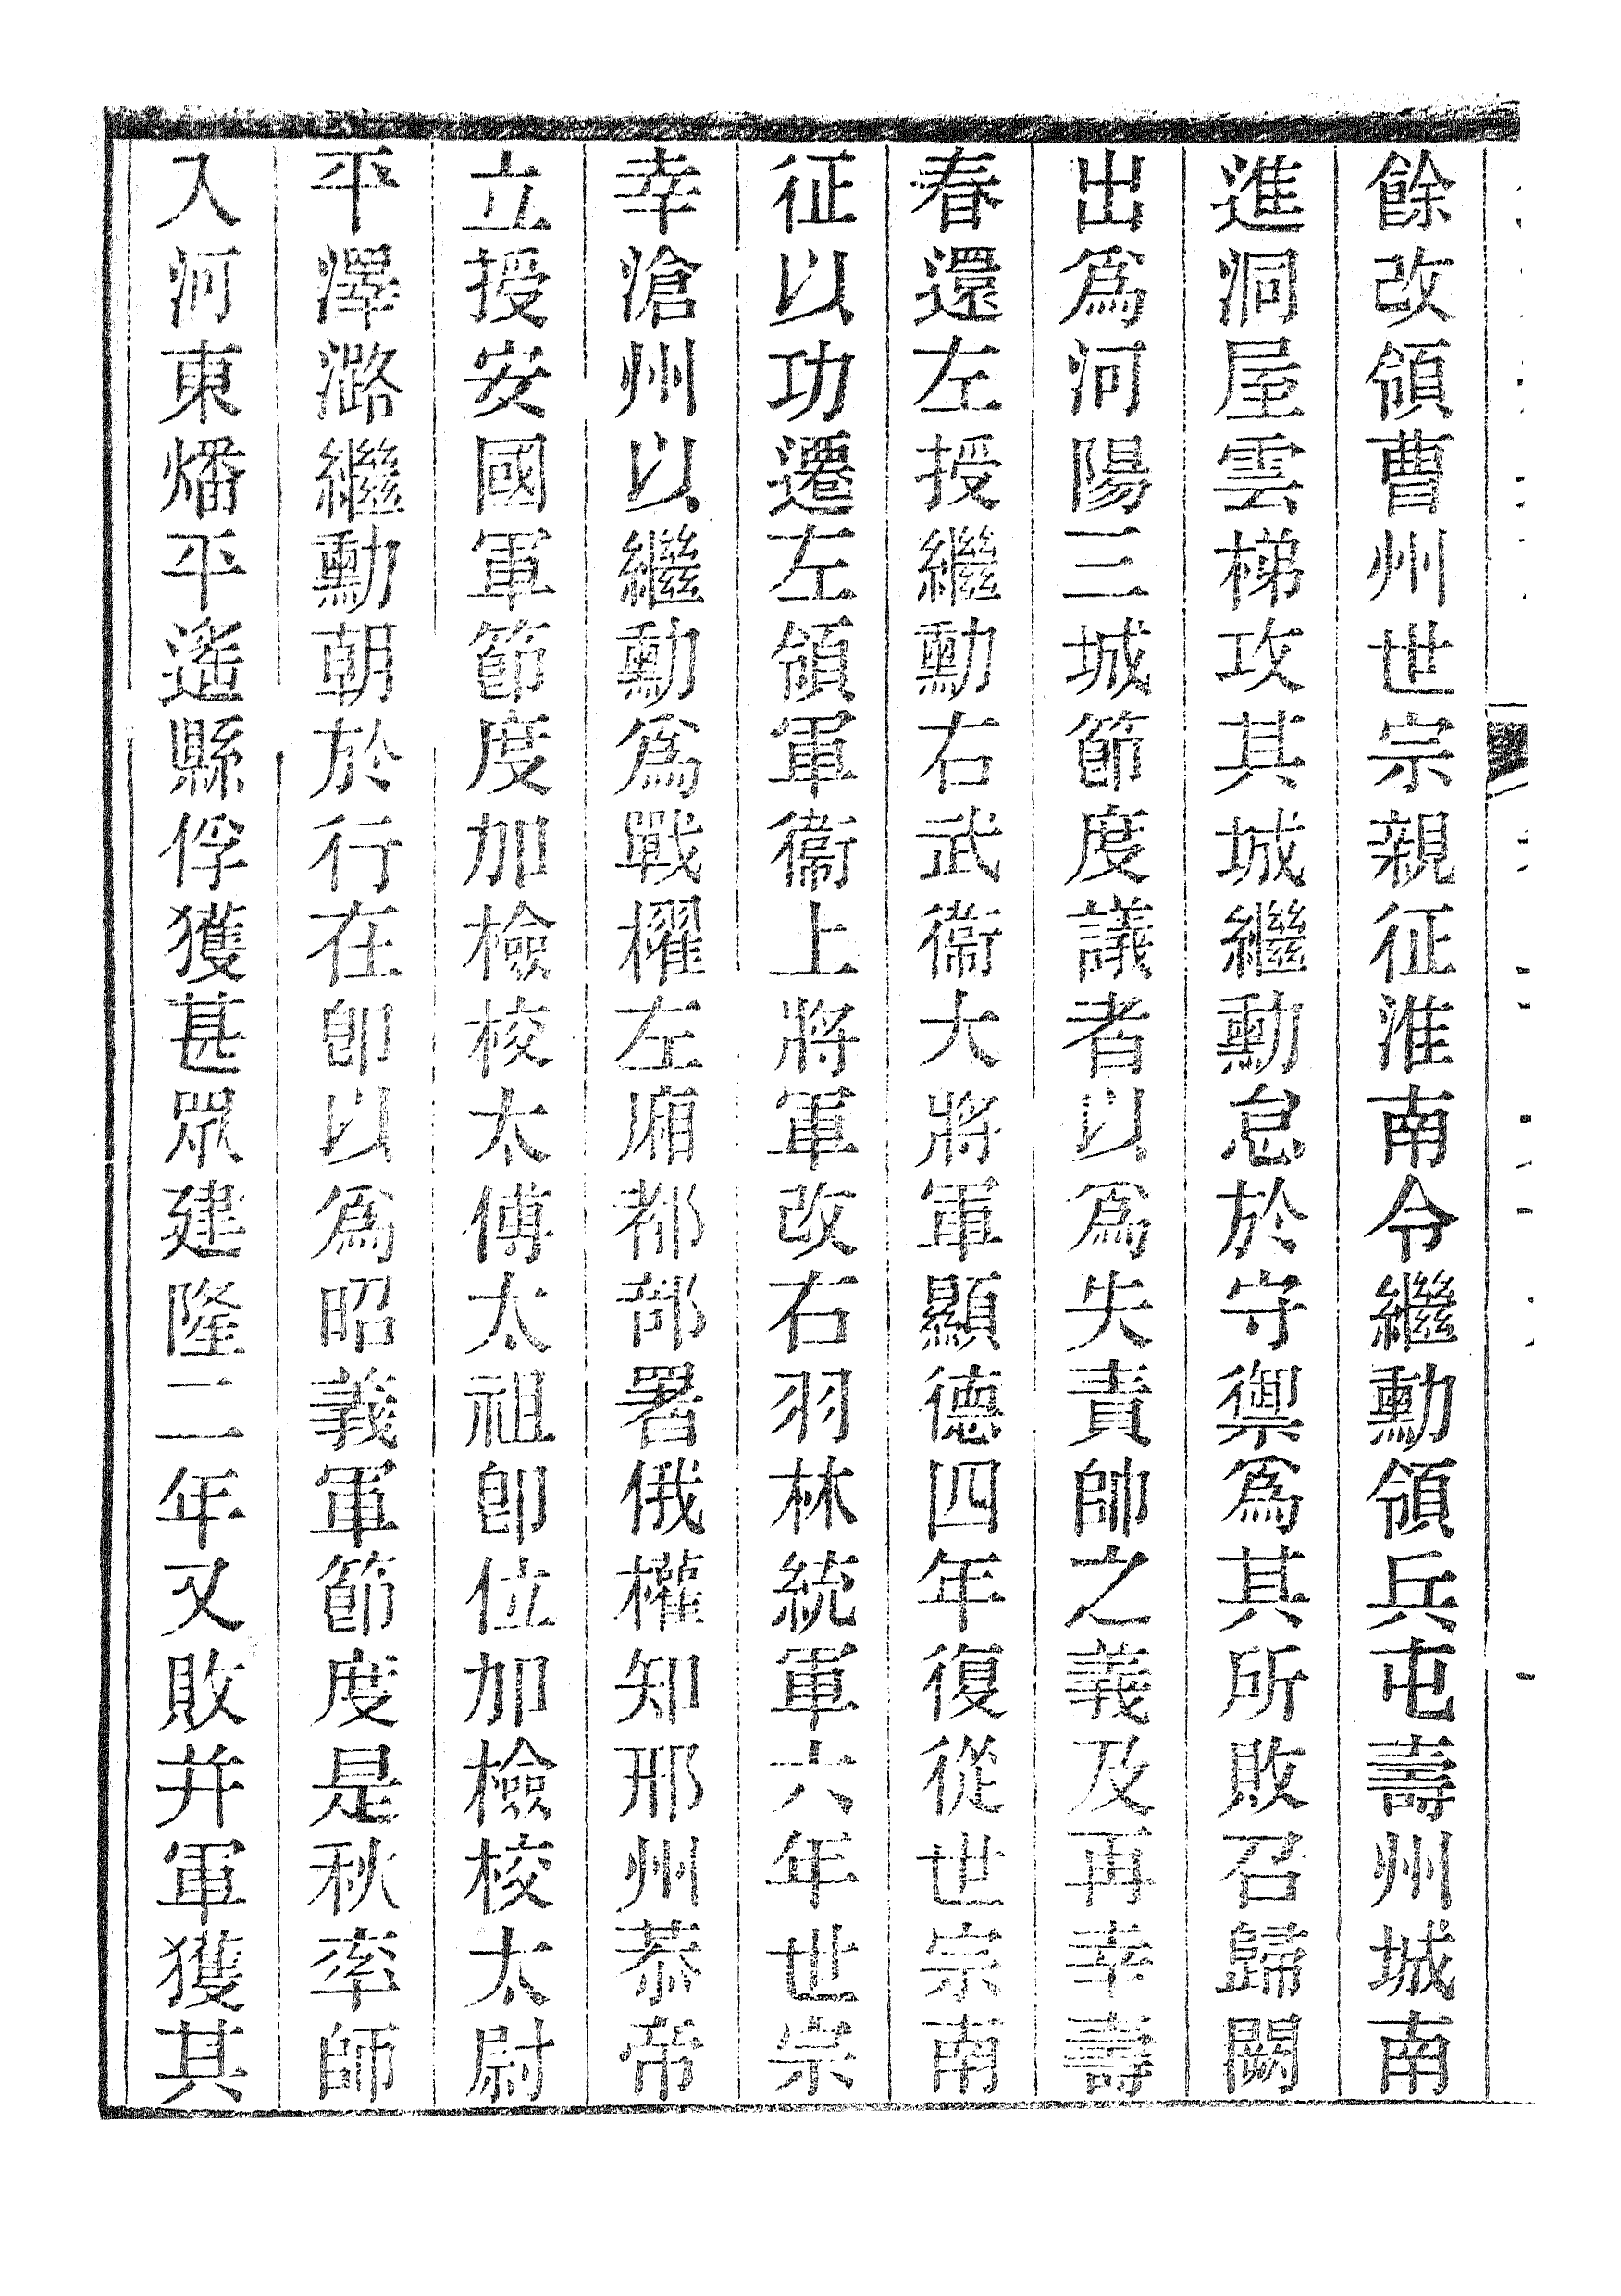 餘改領曹州世宗親征淮南令繼勳領兵屯壽州城南
進洞屋雲梯攻其城繼勳怠於守禦爲其所敗召歸闕
出爲河陽三城節度議者以爲失責帥之義及再幸壽
春還左授繼勳右武衞大將軍顯德四年復從世宗南
征以功遷左領軍衞上將軍改右羽林統軍六年世宗
幸滄州以繼勳爲戰櫂左廂都部署俄權知邢州恭帝
立授安國軍節度加檢校太傅太祖卽位加檢校太尉
平澤潞繼勳朝於行在卽以爲昭義軍節度是秋率師
入河東燔平遙縣俘獲甚眾建隆二年又敗并軍獲其